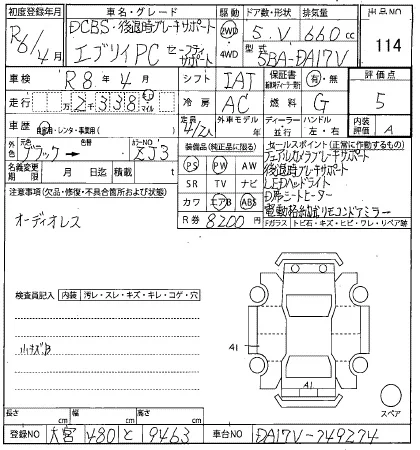 初度登録年月 車名・グレード 駆動 ドア数・形状 排気量 出品NO
R6/4月 DCBS・後退時ブレーキサポート 2WD 4WD 5.V 660cc 114
エブリイPC セーフティサポート 型式 5BA-DA17V
車検 R8年4月 シフト IAT 保証書 有・無 評価点
走行 万2千338 キロ マイル 冷房 AC 燃料 G 5
車歴 自家用・レンタ・事業用( ) 定員 4/2人 外車モデル 年 ディーラー 並行 ハンドル 左・右 内装評価 A
外色 元色 ブラック→ 色替 カラーNO ZJ3 装備品(純正品に限る) セールスポイント(正常に作動するもの)
名義変更期限 月 日 積載 t PS PW AW
注意事項(欠品・修復・不具合箇所および状態) SR TV ナビ
オーディオレス カワ エアB ABS
R券 8200円
後退時ブレーキサポート
LEDヘッドライト
D席シートヒーター
電動格納式リモコンドアミラー
Fガラス トビ石・キズ・ヒビ・ワレ・リペア跡
検査員記入欄 内装 汚レ・スレ・キズ・キレ・コゲ・穴
A1
A1
スペア
長さ cm 幅 cm 高さ cm
登録NO 大宮 480 と 9463 車台NO DA17V-749274